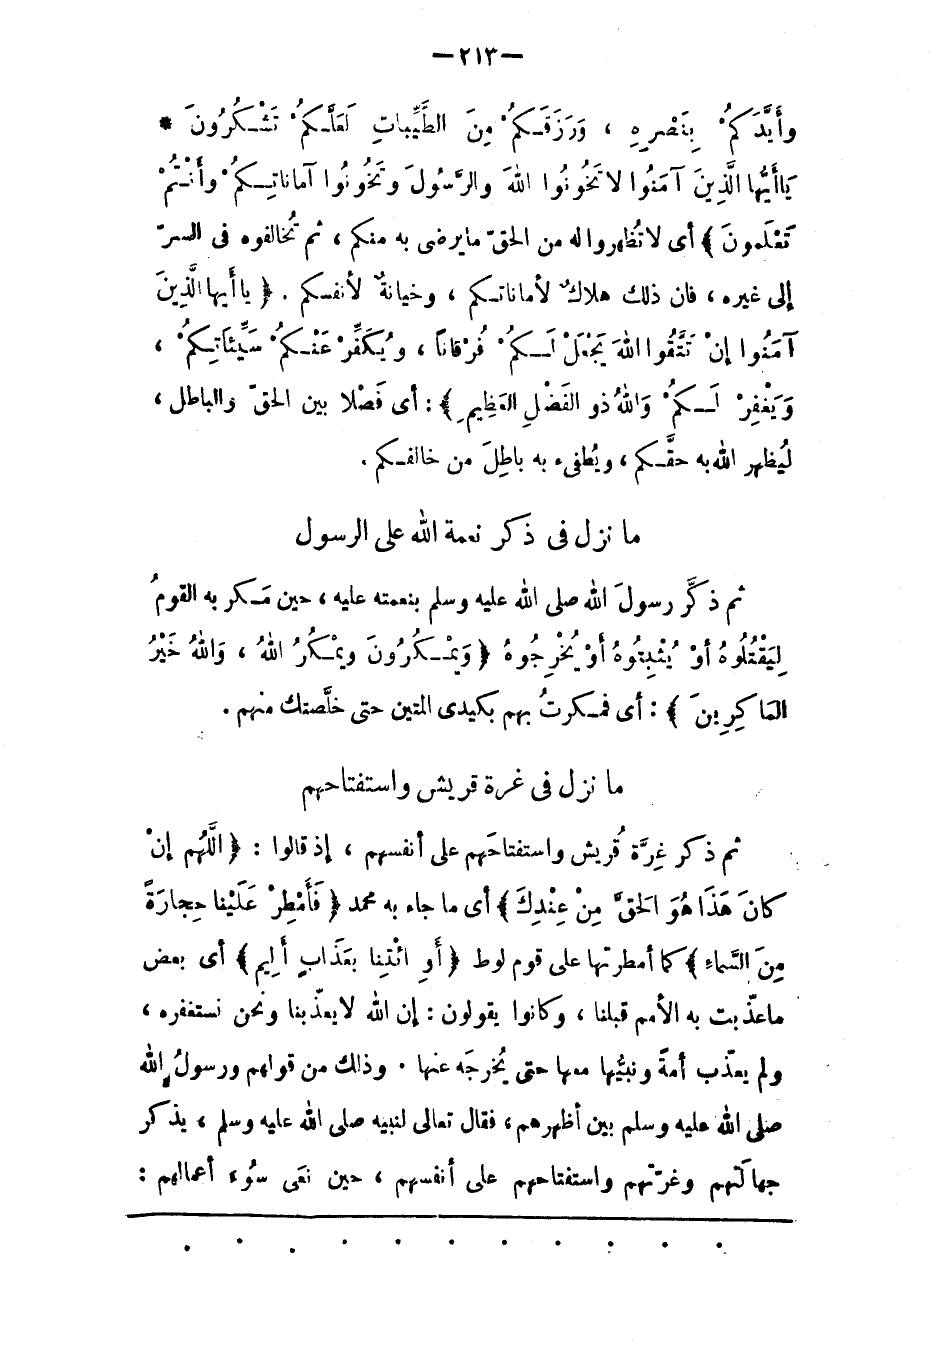 — ٢١٣ —
وأَيَّدَكمُ بِنَصْرِهِ ، وَرَزَقَكمُ مِنَ الطَّيِّباتِ لَعَلَّكمُ تَشْكُرُونَ *
يَاأَيُّها الَّذِينَ آمَنُوا لا تَخُونُوا اللهَ والرَّسُولَ وتَخُونُوا آماناتِكمُ وأَنْتُمْ
تَعْلَمونَ ﴾ أى لا تُظهروا له من الحقّ ما يرضى به منكم ، ثم تُخالفوه فى السرّ
إلى غيره ، فان ذلك هلاكٌ لأماناتكم ، وخيانةٌ لأنفسكم . ﴿ ياأَيها الَّذِينَ
آمَنُوا إِنْ تَتَّقُوا اللهَ يَجْعَلْ لَكمُ فُرْقاناً ، ويُكَفِّرْ عَنْكمُ سَيِّئَاتِكمُ ،
وَيَغْفِرْ لَكمُ وَاللهُ ذو الفَضْلِ العَظِيمِ ﴾ : أى فَصْلا بين الحقّ والباطل ،
لُيظهر الله به حقَّكم ، ويُطفىء به باطِلَ من خالفكم .
ما نزل فى ذكر نعمة الله على الرسول
ثم ذكَّر رسولَ الله صلى الله عليه وسلم بنعمته عليه ، حين مَكر به القومُ
لِيَقْتُلُوهُ أوْ يُثْبِتُوهُ أَوْ يُخْرِجُوهُ ﴿ وَيَمْكُرُونَ ويَمْكُرُ اللهُ ، وَاللهُ خَيْرُ
المَاكِرِينَ ﴾ : أى فمكرتُ بهم بكيدى المتين حتى خلَّصتك منهم .
ما نزل فى غرة قريش واستفتاحهم
ثم ذكر غِرَّة قُريش واستفتاحَهم على أنفسهم ، إذ قالوا : ﴿ اللَّهُم إِنْ
كانَ هَذَا هُوَ الحَقَّ مِنْ عِنْدِكَ ﴾ أى ما جاء به محمد ﴿ فَأَمْطِرْ عَلَيْنا حِجارَةً
مِنَ السَّماءِ ﴾ كما أمطرتها على قوم لوط ﴿ أَوِ ائْتِنا بعَذَابٍ أَلِيم ﴾ أى بعض
ماعذّبت به الأمم قبلنا ، وكانوا يقولون : إن الله لا يعذّبنا ونحن نستغفره ،
ولم يعذّب أمةً ونبيُّها معها حتى يُخرجَه عنها . وذلك من قولهم ورسولُ الله
صلى الله عليه وسلم بين أظهرهم ، فقال تعالى لنبيه صلى الله عليه وسلم ، يذكر
جهالَتهم وغرّتهم واستفتاحهم على أنفسهم ، حين نَعَى سوُء أعمالهم :